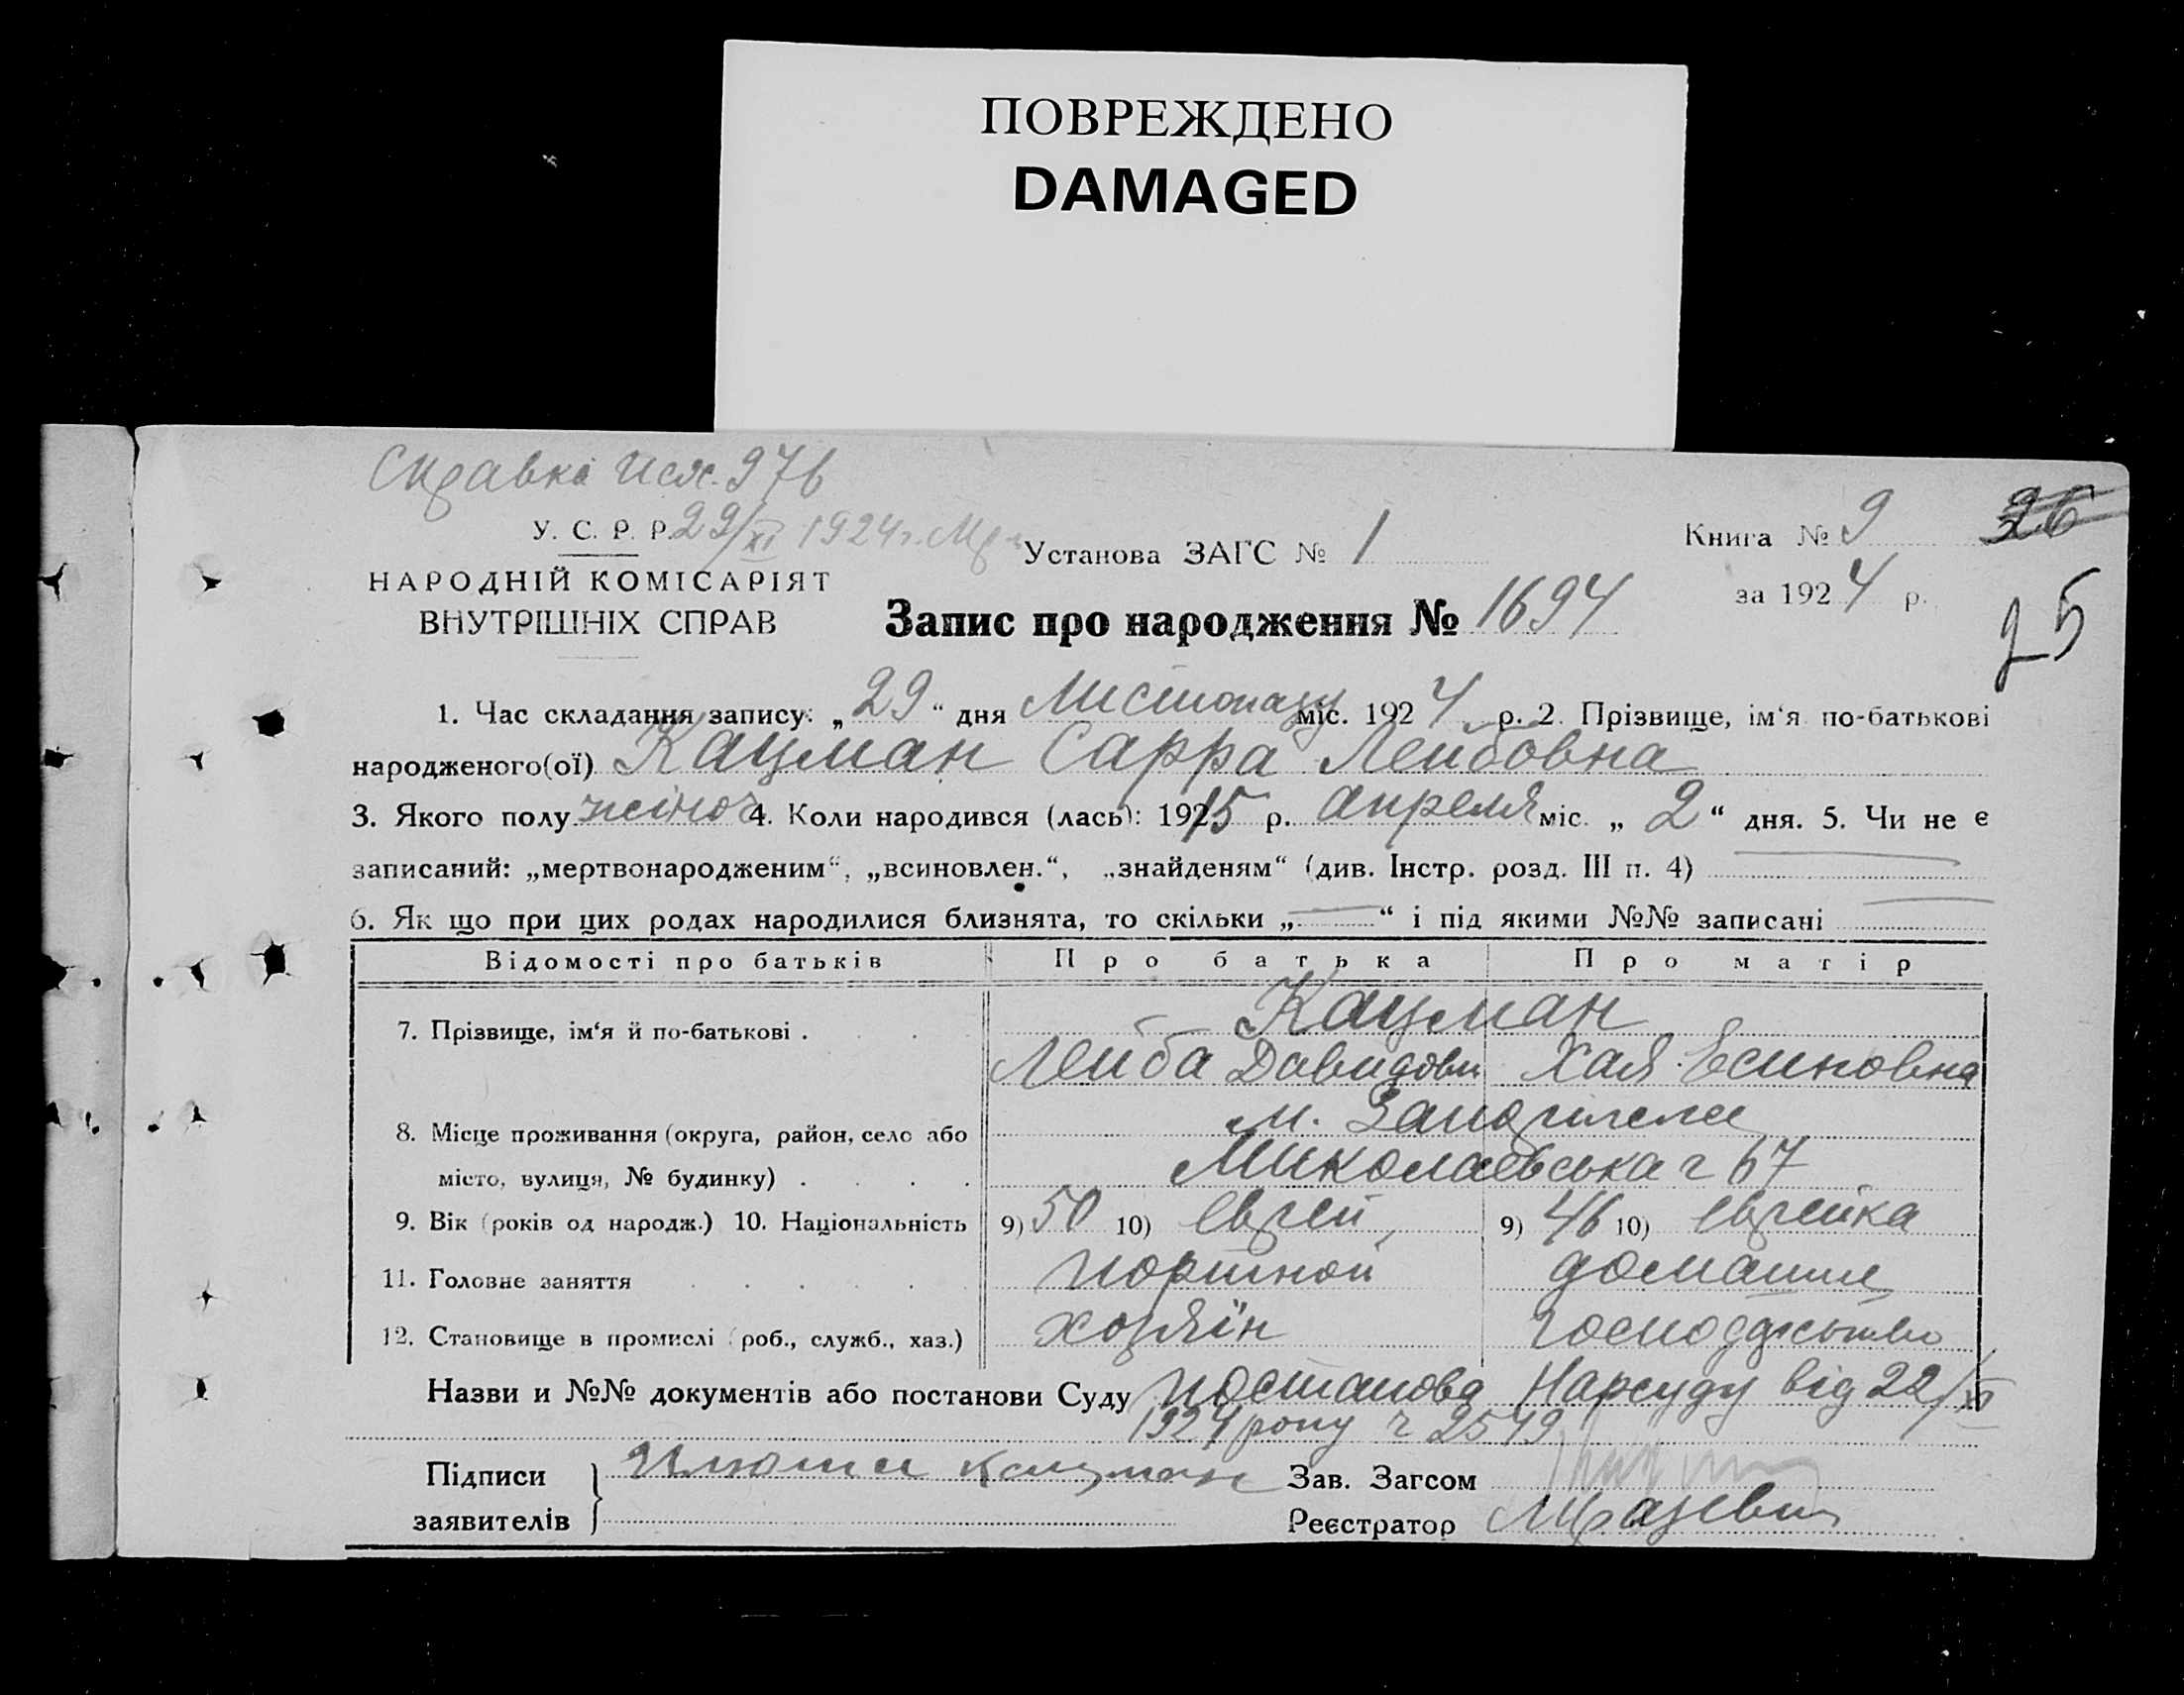 ПОВРЕЖДЕНО
DAMAGED
Справка исх. 976
У. С. Р. Р. 29/XI 1924 г.
Установа ЗАГС № 1
Книга № 9
26
НАРОДНІЙ КОМІСАРІЯТ
ВНУТРІШНІХ СПРАВ
за 1924 р.
Запис про народження № 1694
25
1. Час складання запису: „29“ дня Листопаду міс. 1924 р. 2. Прізвище, ім‘я по-батькові
народженого(ої) Кацман Сарра Лейбовна
3. Якого полу жіноч 4. Коли народився (лась): 1915 р. апреля міс. „2“ дня. 5. Чи не є
записаний: „мертвонародженим“, „всиновлен.“, „знайденям“ (див. Інстр. розд. III п. 4)
6. Як що при цих родах народилися близнята, то скільки „—“ і під якими №№ записані
Відомості про батьків Про батька Про матір
Кацман
7. Прізвище, ім‘я й по-батькові . Лейба Давидови Хая Есиповна
8. Місце проживання (округа, район, село або м.
місто, вулиця, № будинку) . Миколаевська 67
9. Вік (років од народж.) 10. Національність 9) 50 10) еврей 9) 46 10) еврейка
11. Головне заняття портной домашне
12. Становище в промислі (роб., служб., хаз.) хозяїн господарство
Назви и №№ документів або постанови Суду постанова Нарсуду від 22/XI
1924 року ч 2549
Підписи Кацман Зав. Загсом
заявителів Реєстратор